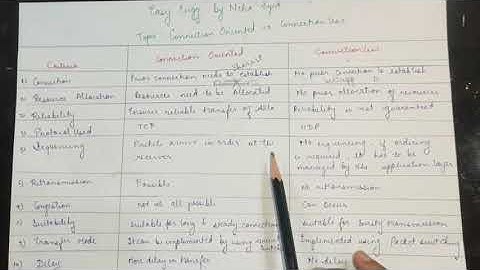 Easy Engg by Neha Syed
Topic Connection Oriented vs Connection less
Criteria Connection Oriented Connectionless
1) Connection Prior connection needs to establish No prior connection to establish
2) Resource Allocation Resources need to be Allocated No prior allocation of resources
3) Reliability Ensure reliable transfer of data Reliability is not guaranteed
4) Protocol Used TCP UDP
5) Sequencing Packet arrive in order at the No sequencing if ordering
receiver is required, it has to be
managed by the application layer
6) Retransmission Possible No retransmission
7) Congestion not at all possible Can Occurs
8) Suitability Suitable for long & steady connection Suitable for bursty transmission
9) Transfer Mode It can be implemented by using Implemented using Packet switching
10) Delay More delay in transfer No delay